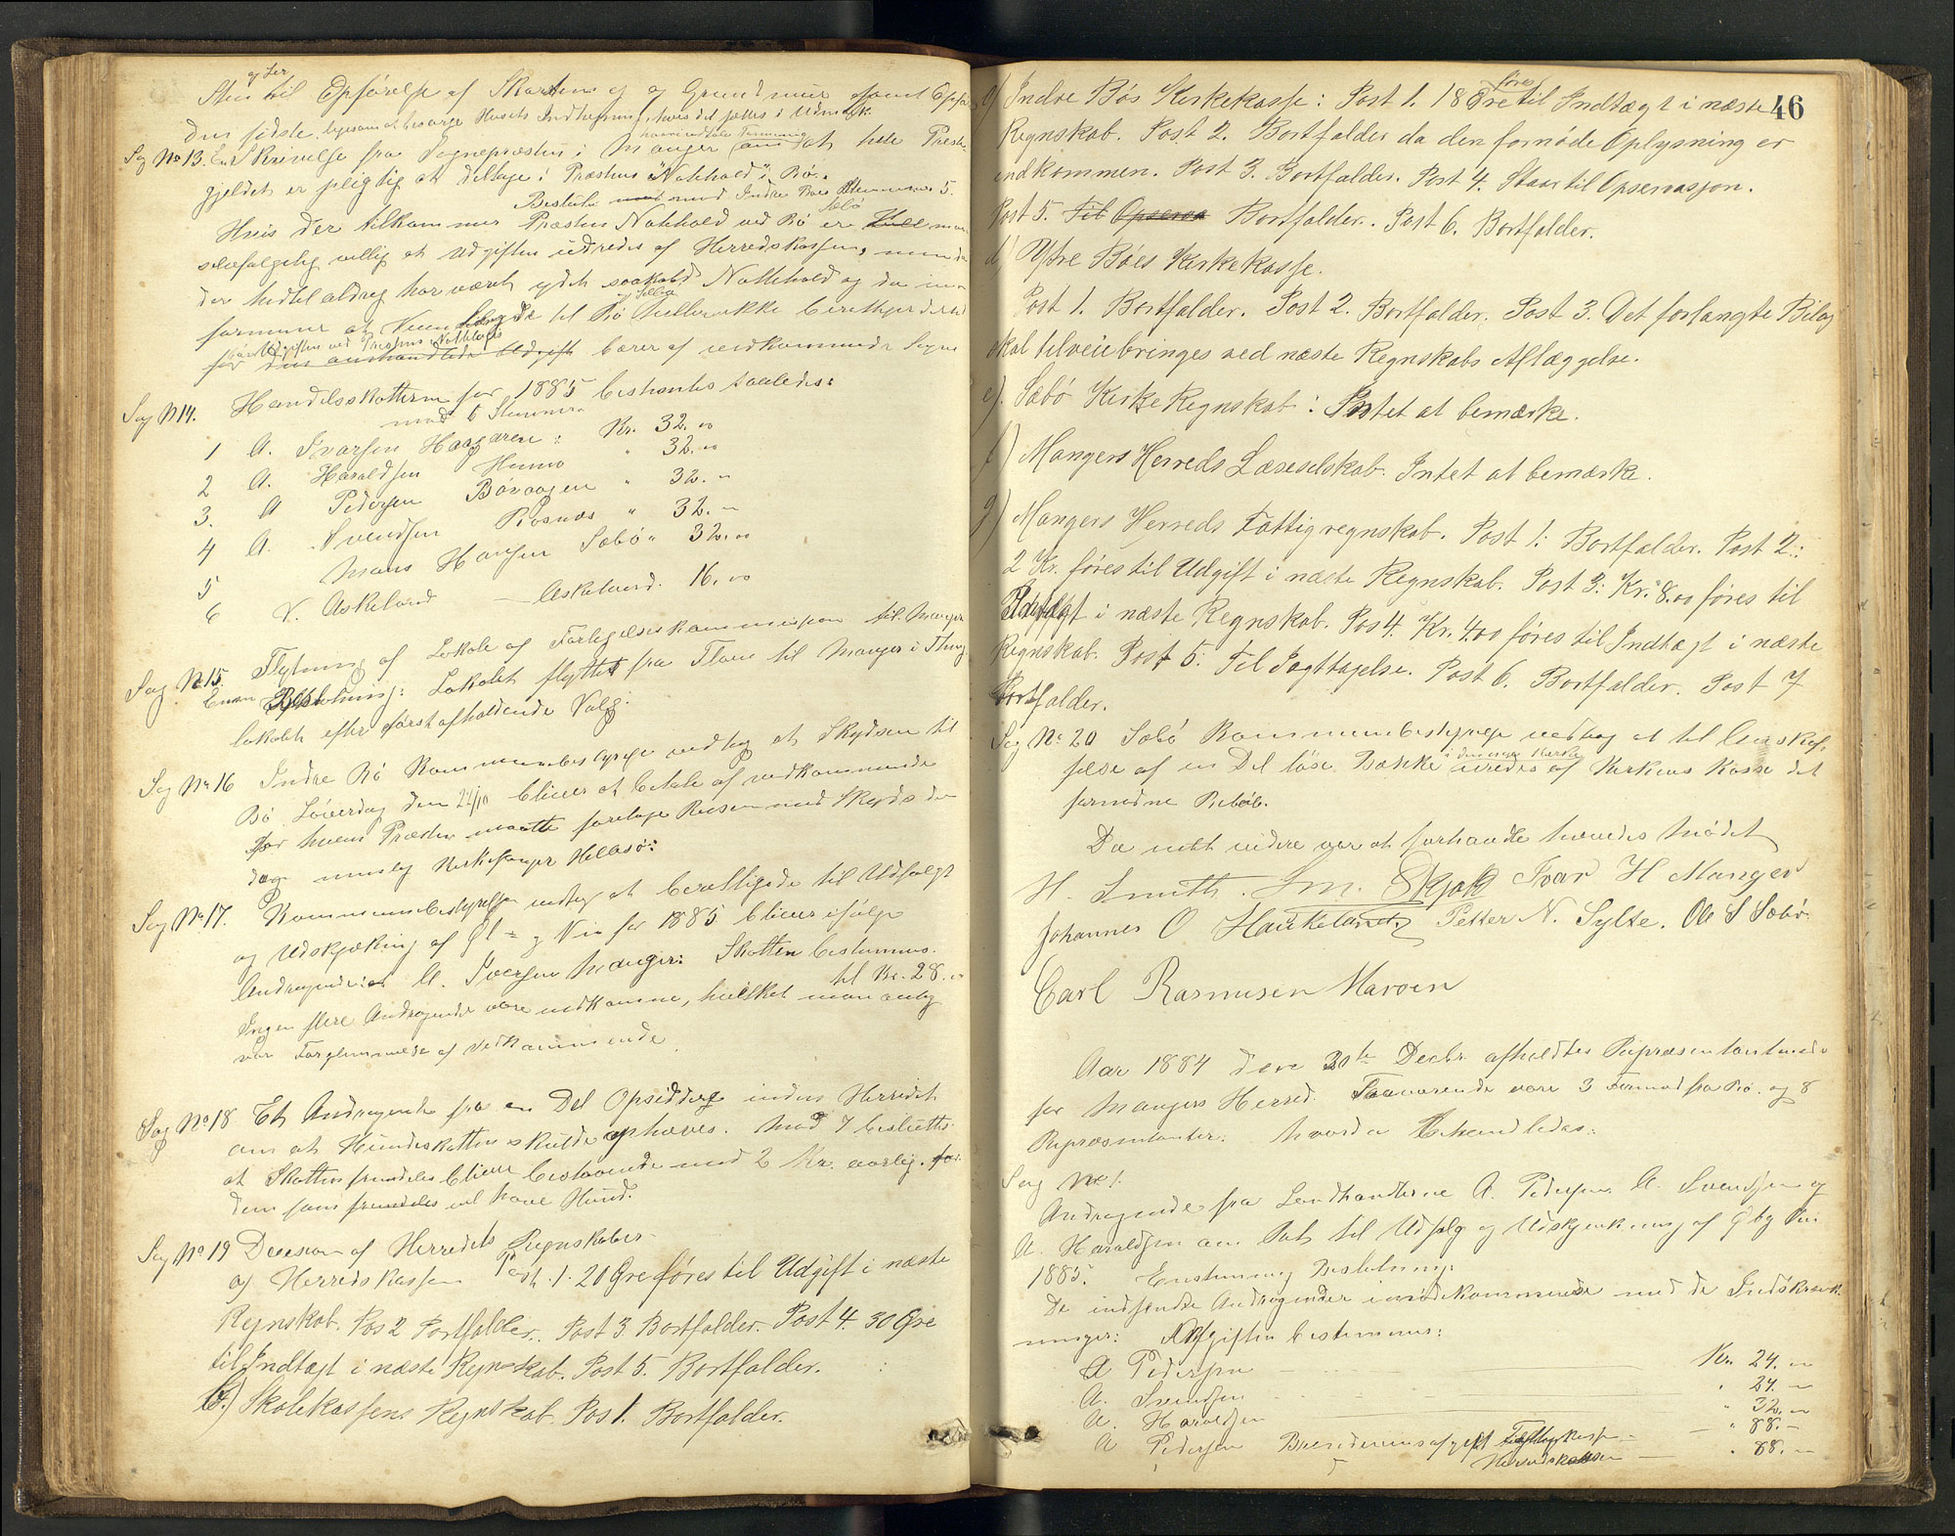 og Ler
Sten til Opførelse af Skorsten og Grundmur samt Opsæt
den fødste, ligesom at besørge Husets Indhegning, hvis det sættes i Udmark
Sag No 13. En Skrivelse fra Sognepræsten i Manger om at hele Præste-
gjeldet er pligtig at deltage i Præstens Nattehold i Bø.
Besluttet mod Indre Bøes Stemmer 5.
Hvis der tilkommer Præsten Nattehold ved Bø er Sæbø man
selvfølgelig villig at Udgiften udredes af Herredskassen, men da
der hidtil aldrig har været ydet saakaldt Nattehold og da man
formener at Veien til Bø heller ikke berettiger dertil
for den omhandlede Udgift bærer af vedkommende Sogne
Sag N 14. Handelsskatterne for 1885 bestemtes saaledes:
med 6 Stemmer
1 A. Ivarsen Haagaren: Kr. 32.00
2 A. Haraldsen Hennø " 32.00
3. A Pedersen Bøvaagen " 32. "
4 A. Svendsen Rosnæs " 32. "
5 Mons Hansen Sæbø " 32.00
6 N. Askeland — Askeland. 16.00
Sag No 15. Flytning af Lokale af Forligelseskommission til Manger
Enon Beslutning: Lokalet flyttet fra Flane til Manger i Thing
lokalet efter først afholdende Valg.
Sag No 16 Indre Bø Kommunebestyrelse vedtog at Skydsen til
Bø Løverdag den 24/10 bliver at betale af vedkommende
for hvem Præsten maatte foretage Reisen med Skyds den
dag nemlig Kirkesanger Hellesø:
Sag No 17. Kommunebestyrelsen vedtog at berettigede til Udsalgt
og Udskjænkning af Øl og Vin for 1885 bliver ifølge
Andragende: A. Iversen Manger: Skatten bestemmes
til Kr. 28.00
Ingen flere Andragender vare indkomne, hvilket man antog
var Forglemmelse af Vedkommende.
Sag No 18 Et Andragende fra en Del Opsiddere inden Herredet
om at Hundeskatten skulde ophæves. Med 7 besluttes
at Skatten fremdeles bliver bestaaende med 2 Kr. aarlig for
dem som fremdeles vil have Hund.
Sag No 19 Decision af Herredets Regnskaber
af Herredskassen Post. 1. 20 Øre føres til Udgift i næste
Regnskab. Pos 2 Bortfalder. Post 3 Bortfalder. Post 4. 30 Øre
til Indtægt i næste Regnskab. Post 5. Bortfalder.
b.) Skolekassens Regnskab. Pos 1. Bortfalder.
46
c) Indre Bøs Kirkekasse: Post 1. 18 Øre føres til Indtægt i næste
Regnskab. Post 2. Bortfalder da den fornøde Oplysning er
indkommen. Post 3. Bortfalder. Post 4. Staar til Opservasjon.
Post 5. Til Opserva Bortfalder. Post 6. Bortfalder.
d) Ytre Bøes Kirkekasse.
Post 1. Bortfalder. Post 2. Bortfalder. Post 3. Det forlangte Bilag
skal tilveiebringes ved næste Regnskabs Aflæggelse.
e). Sæbø Kirke Regnskab: Intet at bemærke.
f) Mangers Herreds Læseselskab. Intet at bemærke.
g) Mangers Herreds Fattigregnskab. Post 1: Bortfalder. Post 2:
2 Kr. føres til Udgift i næste Regnskab. Post 3: Kr. 8.00 føres til
Udgift i næste Regnskab. Pos 4. Kr. 4.00 føres til Indtægt i næste
Regnskab. Post 5. Til Iagttagelse. Post 6. Bortfalder. Post 7
Bortfalder.
Sag No 20 Sæbø Kommunebestyrelse vedtog at til Anskaf-
felse af en Del løse Bænke i den nye Kirke udredes af Kirkens Kasse det
fornødne Beløb.
Da intet videre var at forhandle hævedes Mødet
H. Smith. Im. Skjak Ivar H Manger
Johannes O Haukeland Petter N. Sylte. Ole S Sæbø.
Carl Rasmusen Marøen
Aar 1884 den 30te Decbr afholdtes Repræsentantmøde
for Mangers Herred. Tilstedeværende vare 3 Formænd fra Bø. og 8
Repræsentanter. hvorda behandledes:
Sag No 1.
Andragende fra Landhandlerne A. Pedersen A. Svendsen og
A. Haraldsen om Ret til Udsalg og Udskjænkning af Øl og Vin
1885. Enstemmig Beslutning:
De indsendte Andragender imødekommes med de Indskrænk
ninger: Afgiften bestemmes:
A Pedersen Kr. 24. "
A. Svendsen " 24. "
A. Haraldsen " 32. "
A Pedersen Brændevinsafgift Fattigkassen — " 88. "
Herredskassen — " 88. "